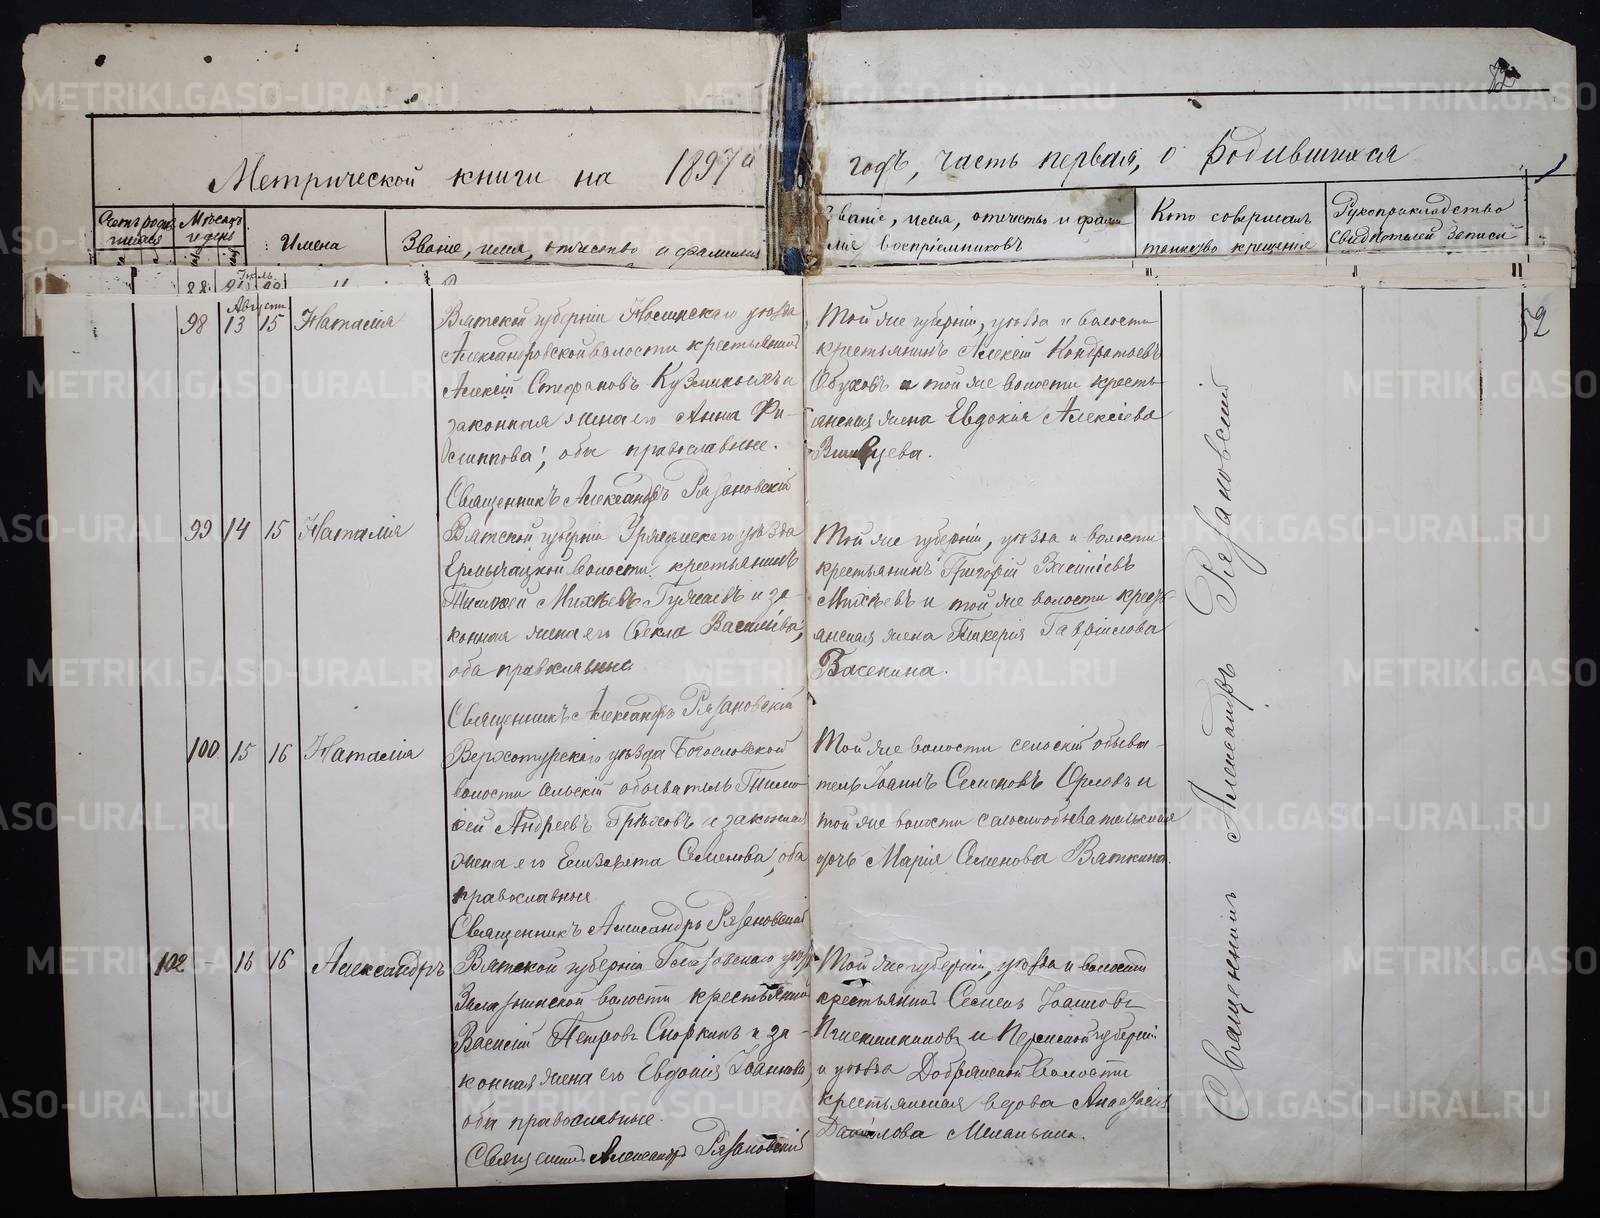 Метрической книги на 1897й
годъ, часть первая, о родившихся
Счетъ родившихся
Мѣсяцъ и день
Имена
Званіе, имя, отчество и фамилія
Званіе, имя, отчество и фамилія воспріемниковъ
Кто совершалъ таинство крещенія
Рукоприкладство свидѣтелей записи
88
Іюль
Августъ
98 13 15 Наталія
Вятской губерніи Нолинскаго уѣзда
Александровской волости крестьянинъ
Алексій Стефановъ Кузминыхъ и
законная жена его Анна Фи-
липпова; оба православные.
Священникъ Александръ Рязановскій
Той же губерніи, уѣзда и волости
крестьянинъ Алексій Кондратьевъ
Обуховъ и той же волости кресть-
янская жена Евдокія Алексіева
52
99 14 15 Наталія
Вятской губерніи Уржумскаго уѣзда
волости крестьянинъ
Тимоѳей Михѣевъ и за-
конная жена его Ѳекла Василіева,
оба православные
Священникъ Александръ Рязановскій
Той же губерніи, уѣзда и волости
крестьянинъ Григорій Василіевъ
Михѣевъ и той же волости кресть-
янская жена Гликерія Гавріилова
Басенина.
100 15 16 Наталія
Верхотурскаго уѣзда Богословской
волости сельскій обыватель Тимо-
ѳей Андреевъ Грѣховъ и законная
жена его Елизавета Семенова, оба
православные
Священникъ Александръ Рязановскій
Той же волости сельскій обыва-
тель Іоаннъ Семеновъ Орловъ и
той же волости сельскообывательская
дочь Марія Семенова Вяткина.
102 - 16 16 Александръ
Вятской губерніи Глазовскаго уѣзда
волости крестьянинъ
Василій Петровъ Сноркинъ и за-
конная жена его Евдокія Іоаннова,
оба православные.
Священникъ Александръ Рязановскій
Той же губерніи, уѣзда и волости
крестьянинъ Семенъ Іоанновъ
и Пермской губерніи
и уѣзда Добрянской волости
крестьянская вдова Анастасія
Даніилова Меланьина.
Священникъ Александръ Рязановскій
METRIKI.GASO-URAL.RU